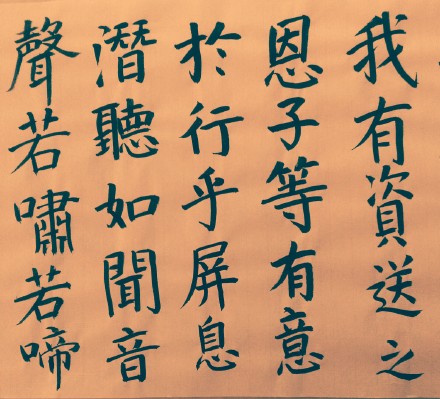 我有資送之
恩子等有意
於行乎屏息
潛聽如聞音
聲若嘯若啼